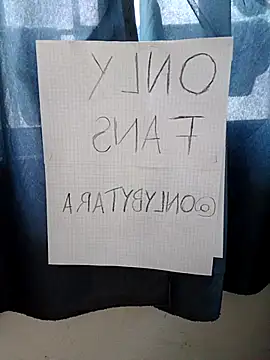 ONLY
FANS
@ONLYBYTARA